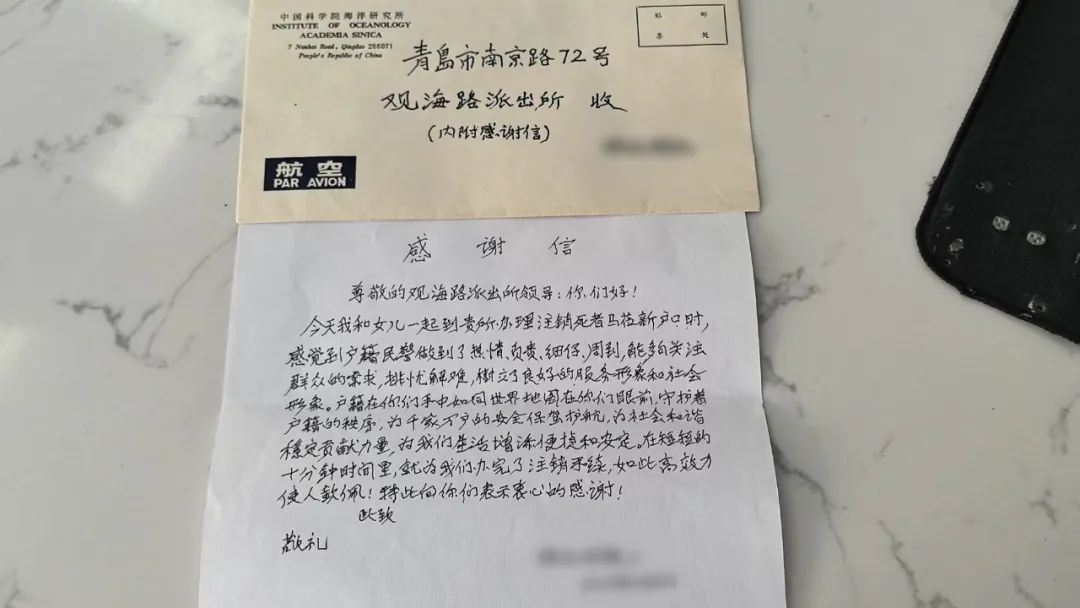 中国科学院海洋研究所
INSTITUTE OF OCEANOLOGY
ACADEMIA SINICA
7 Nanhai Road, Qingdao 266071
People's Republic of China
贴 邮
票 处
青岛市南京路72号
观海路派出所 收
(内附感谢信)
航空
PAR AVION
感谢信
尊敬的观海路派出所领导:你们好!
今天我和女儿一起到贵所办理注销死者马菈新户口时,
感觉到户籍民警做到了热情、负责、细仔、周到,能够关注
群众的需求,排忧解难,樹立了良好的服务形象和社会
形象。户籍在你们手中如同世界地图在你们眼前,守护着
户籍的秩序,为千家万户的安全保驾护航,为社会和谐
稳定贡献力量,为我们生活增添便捷和安定。在短短的
十分鐘时间里,就为我们办完了注销手续,如此高效力
使人钦佩!特此向你们表示衷心的感谢!
此致
敬礼